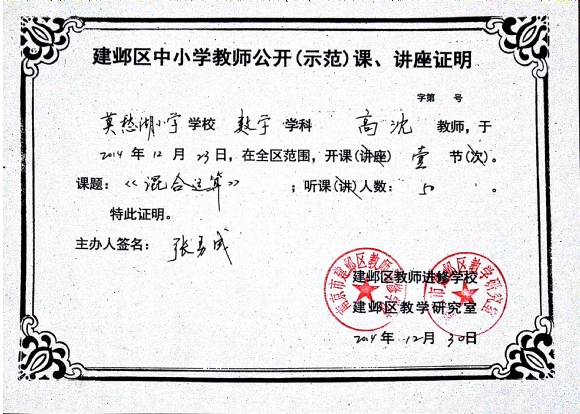 建邺区中小学教师公开(示范)课、讲座证明
字第 号
莫愁湖小学 学校 数学 学科 高沈 教师,于
2014 年 12 月 23 日,在全区范围,开课(讲座) 壹 节(次)。
课题:《混合运算》 ;听课(讲)人数: 50 。
特此证明。
主办人签名: 张勇成
建邺区教师进修学校
建邺区教学研究室
2014 年 12 月 30 日